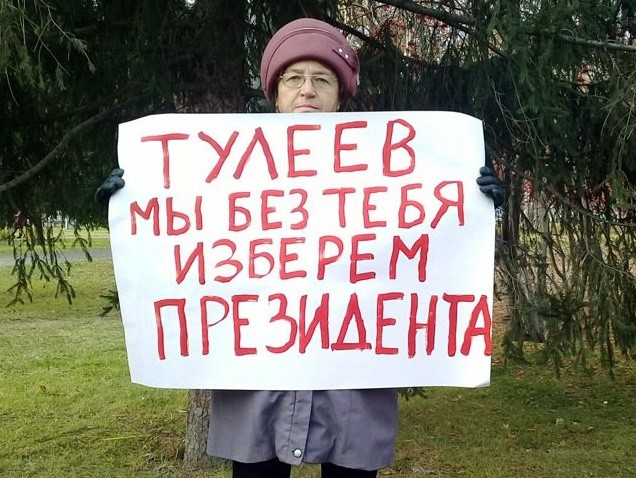 ТУЛЕЕВ
МЫ БЕЗ ТЕБЯ
ИЗБЕРЕМ
ПРЕЗИДЕНТА